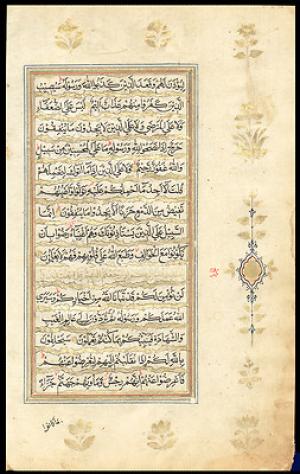 لِيُؤْذَنَ لَهُمْ وَقَعَدَ الَّذِينَ كَذَبُوا اللَّهَ وَرَسُولَهُ سَيُصِيبُ
الَّذِينَ كَفَرُوا مِنْهُمْ عَذَابٌ أَلِيمٌ لَيْسَ عَلَى الضُّعَفَاءِ
وَلَا عَلَى الْمَرْضَى وَلَا عَلَى الَّذِينَ لَا يَجِدُونَ مَا يُنْفِقُونَ
حَرَجٌ إِذَا نَصَحُوا لِلَّهِ وَرَسُولِهِ مَا عَلَى الْمُحْسِنِينَ مِنْ سَبِيلٍ
وَاللَّهُ غَفُورٌ رَحِيمٌ وَلَا عَلَى الَّذِينَ إِذَا مَا أَتَوْكَ لِتَحْمِلَهُمْ
قُلْتَ لَا أَجِدُ مَا أَحْمِلُكُمْ عَلَيْهِ تَوَلَّوْا وَأَعْيُنُهُمْ
تَفِيضُ مِنَ الدَّمْعِ حَزَنًا أَلَّا يَجِدُوا مَا يُنْفِقُونَ إِنَّمَا
السَّبِيلُ عَلَى الَّذِينَ يَسْتَأْذِنُونَكَ وَهُمْ أَغْنِيَاءُ رَضُوا بِأَنْ
يَكُونُوا مَعَ الْخَوَالِفِ وَطَبَعَ اللَّهُ عَلَى قُلُوبِهِمْ فَهُمْ لَا يَعْلَمُونَ
لَنْ نُؤْمِنَ لَكُمْ قَدْ نَبَّأَنَا اللَّهُ مِنْ أَخْبَارِكُمْ وَسَيَرَى
اللَّهُ عَمَلَكُمْ وَرَسُولُهُ ثُمَّ تُرَدُّونَ إِلَى عَالِمِ الْغَيْبِ
وَالشَّهَادَةِ فَيُنَبِّئُكُمْ بِمَا كُنْتُمْ تَعْمَلُونَ سَيَحْلِفُونَ
بِاللَّهِ لَكُمْ إِذَا انْقَلَبْتُمْ إِلَيْهِمْ لِتُعْرِضُوا عَنْهُمْ
فَأَعْرِضُوا عَنْهُمْ إِنَّهُمْ رِجْسٌ وَمَأْوَاهُمْ جَهَنَّمُ جَزَاءً
بما كانوا